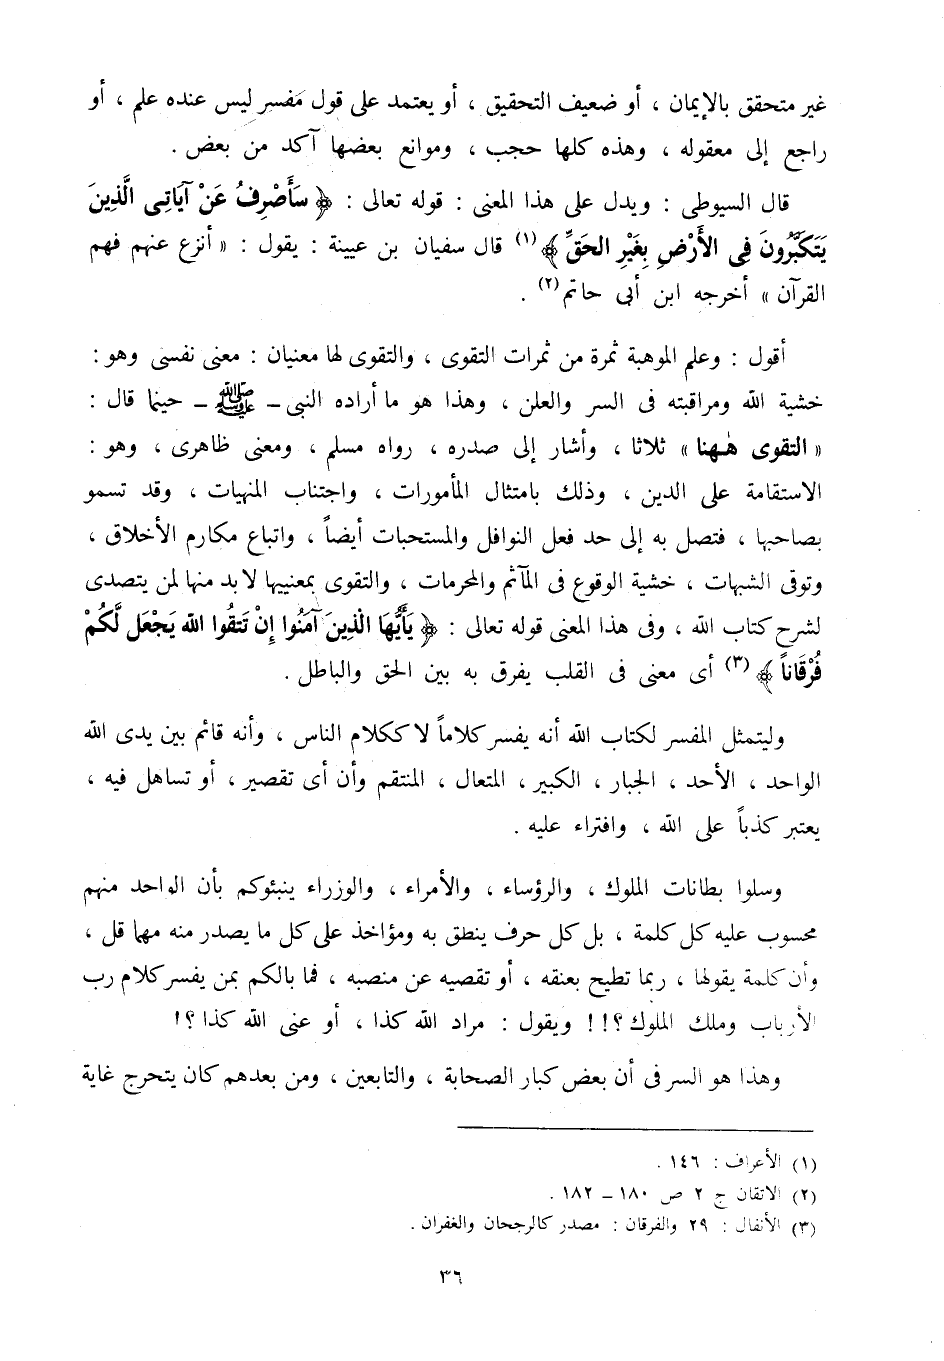 غير متحقق بالإيمان ، أو ضعيف التحقيق ، أو يعتمد على قول مفسر ليس عنده علم ، أو
راجع إلى معقوله ، وهذه كلها حجب ، وموانع بعضها آكد من بعض .
قال السيوطى : ويدل على هذا المعنى : قوله تعالى : ﴿ سَأَصْرِفُ عَنْ آيَاتِى الَّذِينَ
يَتَكَبَّرُونَ فِى الأَرْضِ بِغَيْرِ الحَقِّ ﴾ (١) قال سفيان بن عيينة : يقول : « أنزع عنهم فهم
القرآن » أخرجه ابن أبى حاتم (٢) .
أقول : وعلم الموهبة ثمرة من ثمرات التقوى ، والتقوى لها معنيان : معنى نفسى وهو :
خشية الله ومراقبته فى السر والعلن ، وهذا هو ما أراده النبى ـ ﷺ ـ حينما قال :
« التقوى هٰـهنا » ثلاثا ، وأشار إلى صدره ، رواه مسلم ، ومعنى ظاهرى ، وهو :
الاستقامة على الدين ، وذلك بامتثال المأمورات ، واجتناب المنهيات ، وقد تسمو
بصاحبها ، فتصل به إلى حد فعل النوافل والمستحبات أيضاً ، واتباع مكارم الأخلاق ،
وتوقى الشبهات ، خشية الوقوع فى المآثم والمحرمات ، والتقوى بمعنييها لا بد منها لمن يتصدى
لشرح كتاب الله ، وفى هذا المعنى قوله تعالى : ﴿ يَأَيُّهَا الَّذِينَ آمَنُوا إِنْ تَتَقُوا الله يَجْعَل لَّكُمْ
فُرْقَاناً ﴾ (٣) أى معنى فى القلب يفرق به بين الحق والباطل .
وليتمثل المفسر لكتاب الله أنه يفسر كلاماً لا ككلام الناس ، وأنه قائم بين يدى الله
الواحد ، الأحد ، الجبار ، الكبير ، المتعال ، المنتقم وأن أى تقصير ، أو تساهل فيه ،
يعتبر كذباً على الله ، وافتراء عليه .
وسلوا بطانات الملوك ، والرؤساء ، والأمراء ، والوزراء ينبئوكم بأن الواحد منهم
محسوب عليه كل كلمة ، بل كل حرف ينطق به ومؤاخذ على كل ما يصدر منه مهما قل ،
وأن كلمة يقولها ، ربما تطيح بعنقه ، أو تقصيه عن منصبه ، فما بالكم بمن يفسر كلام رب
الأرباب وملك الملوك ؟!! ويقول : مراد الله كذا ، أو عنى الله كذا ؟!
وهذا هو السر فى أن بعض كبار الصحابة ، والتابعين ، ومن بعدهم كان يتحرج غاية
(١) الأعراف : ١٤٦ .
(٢) الاتقان ج ٢ ص ١٨٠ ـ ١٨٢ .
(٣) الأنفال : ٢٩ والفرقان : مصدر كالرجحان والغفران .
٣٦